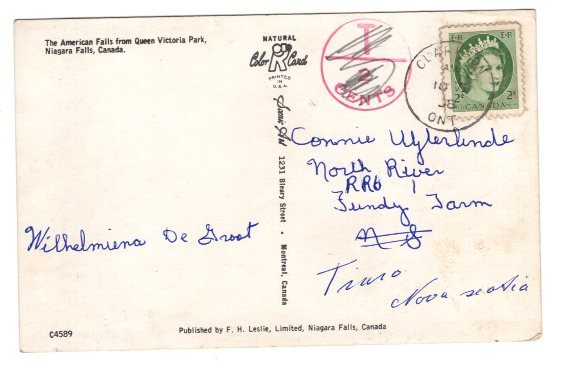 The American Falls from Queen Victoria Park,
Niagara Falls, Canada.
NATURAL
Color Card
R
PRINTED IN
U.S.A.
T
CENTS
ONT
E II R
E II R
2¢ CANADA 2¢
Scenic Art 1231 Bleury Street • Montreal, Canada
Connie
North River
RR6 1
Fundy Farm
N S
Truro
Nova scotia
Wilhelmiena De Groot
C4589
Published by F. H. Leslie, Limited, Niagara Falls, Canada